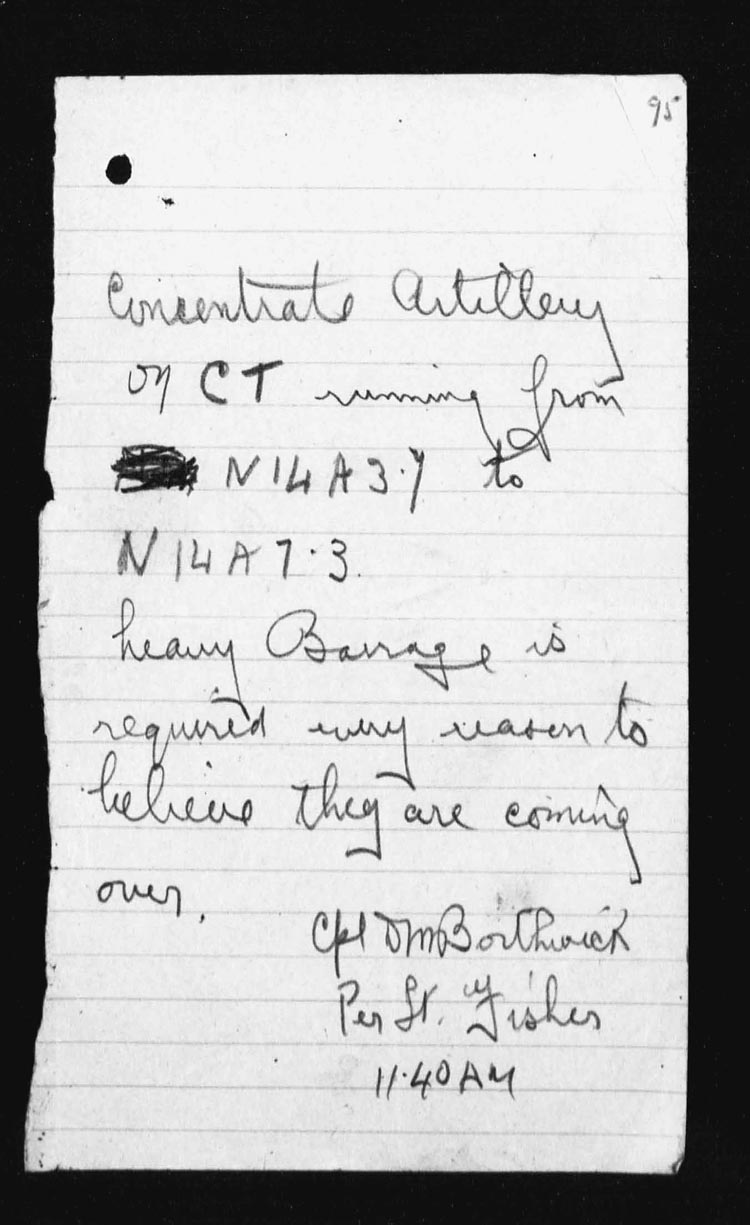 95
Concentrate Artillery
on CT running from
N 14 A 3.7 to
N 14 A 7.3.
heavy Barrage is
required every reason to
believe they are coming
over.
Cpl D M Borthwick
Per Lt. Fisher
11.40 AM